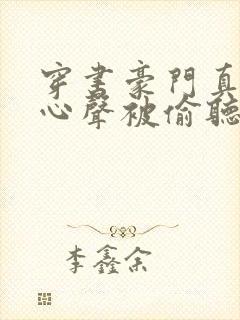 穿書豪門真
心聲被偷聽
李鑫余